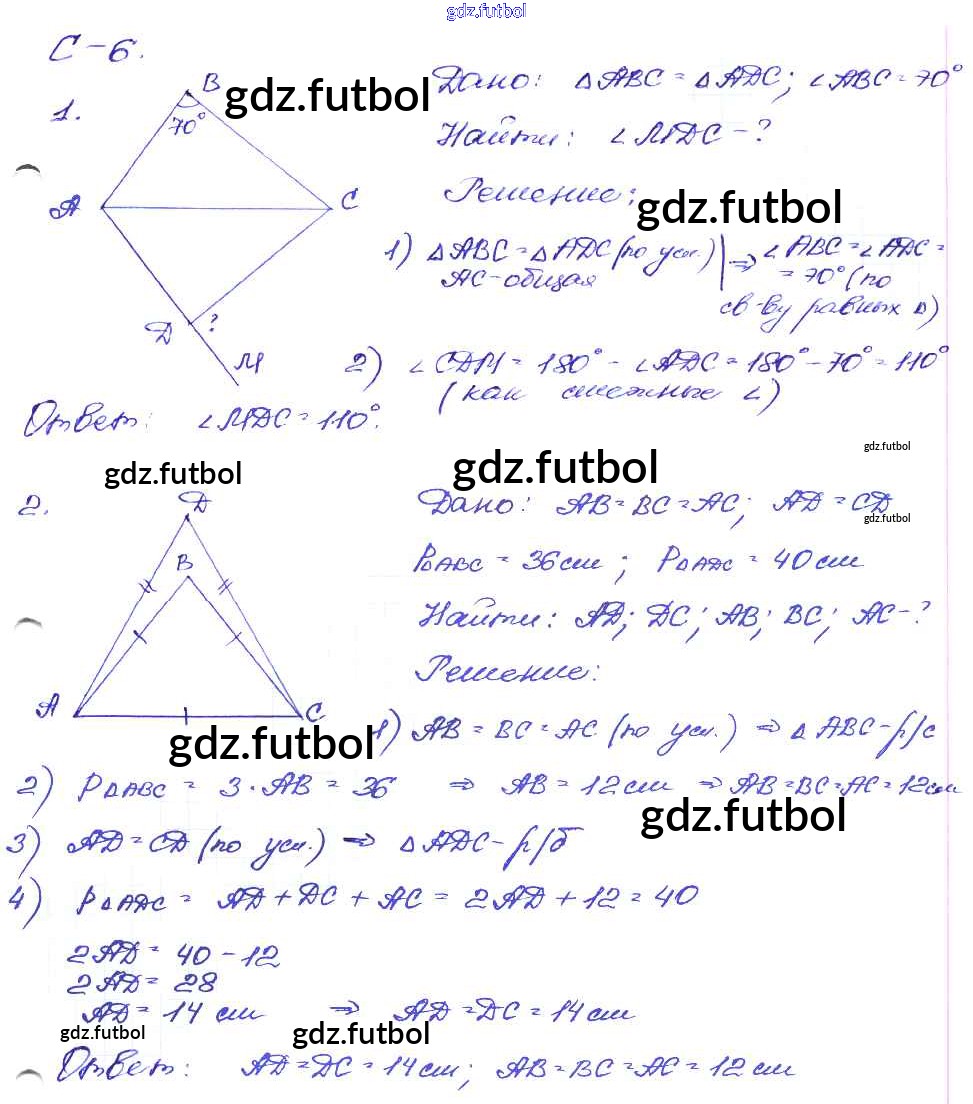 gdz.futbol
С-6.
1.
B
70°
A
C
D
?
M
gdz.futbol
Дано: △ABC = △ADC; ∠ABC = 70°
Найти: ∠MDC - ?
Решение:
gdz.futbol
1) △ABC = △ADC (по усл.) | ⇒ ∠ABC = ∠ADC =
AC - общая = 70° (по
св-ву равных △)
2) ∠CDM = 180° - ∠ADC = 180° - 70° = 110°
(как смежные ∠)
Ответ: ∠MDC = 110°.
gdz.futbol
gdz.futbol
gdz.futbol
2.
D
B
A
C
Дано: AB = BC = AC; AD = CD
gdz.futbol
P△ABC = 36 см; P△ADC = 40 см
Найти: AD; DC; AB; BC; AC - ?
Решение:
1) AB = BC = AC (по усл.) ⇒ △ABC - р/с
gdz.futbol
2) P△ABC = 3·AB = 36 ⇒ AB = 12 см ⇒ AB = BC = AC = 12 см
gdz.futbol
3) AD = CD (по усл.) ⇒ △ADC - р/б
4) P△ADC = AD + DC + AC = 2AD + 12 = 40
2AD = 40 - 12
2AD = 28
AD = 14 см ⇒ AD = DC = 14 см
gdz.futbol
gdz.futbol
Ответ: AD = DC = 14 см; AB = BC = AC = 12 см